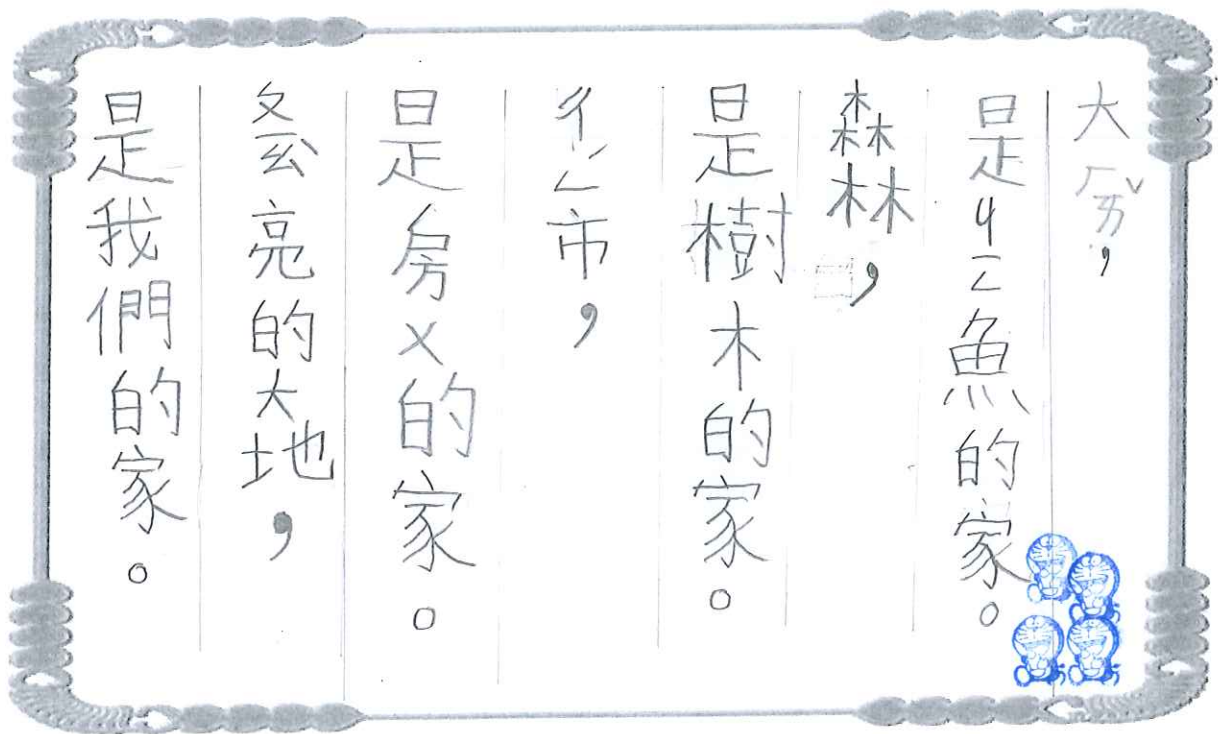 大ㄏㄞˇ，
是ㄐㄧㄥ魚的家。
森林，
是樹木的家。
ㄔㄥˊ市，
是房ㄨ的家。
ㄆㄧㄠˋ亮的大地，
是我們的家。